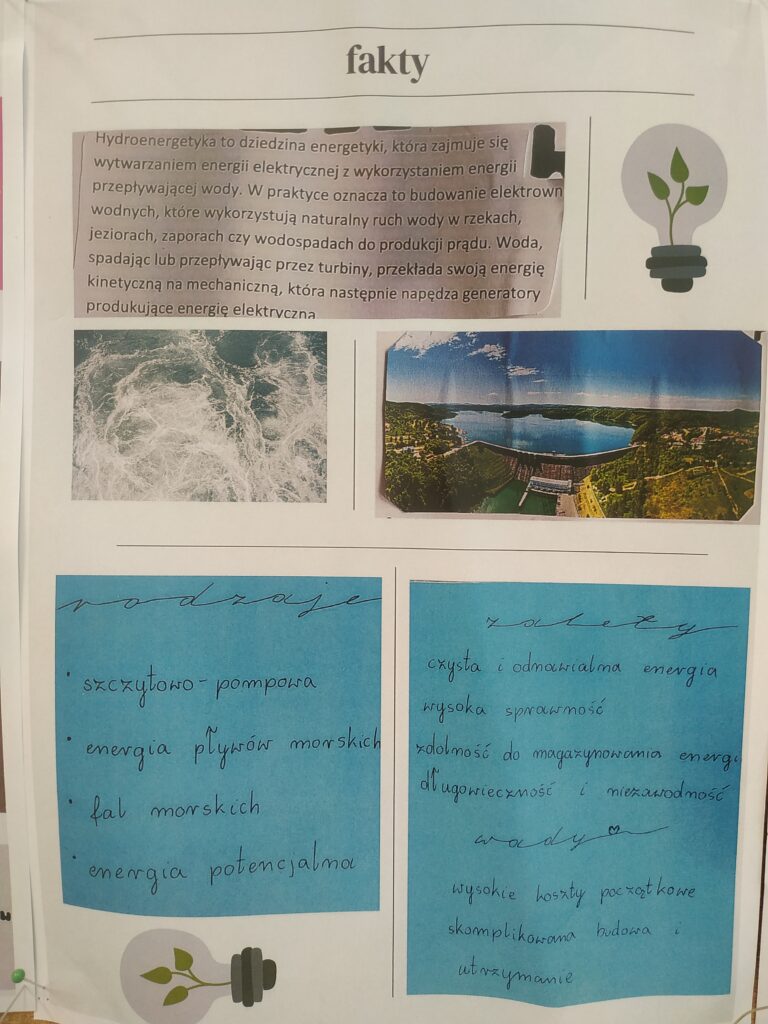 fakty
Hydroenergetyka to dziedzina energetyki, która zajmuje się
wytwarzaniem energii elektrycznej z wykorzystaniem energii
przepływającej wody. W praktyce oznacza to budowanie elektrown
wodnych, które wykorzystują naturalny ruch wody w rzekach,
jeziorach, zaporach czy wodospadach do produkcji prądu. Woda,
spadając lub przepływając przez turbiny, przekłada swoją energię
kinetyczną na mechaniczną, która następnie napędza generatory
produkujące energię elektryczną
rodzaje
• szczytowo-pompowa
• energia pływów morskich
• fal morskich
• energia potencjalna
zalety
czysta i odnawialna energia
wysoka sprawność
zdolność do magazynowania energi
długowieczność i niezawodność
wady
wysokie koszty początkowe
skomplikowana budowa i
utrzymanie